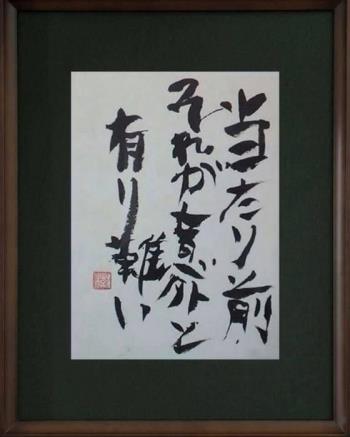 当たり前
それが意外と
有り難い